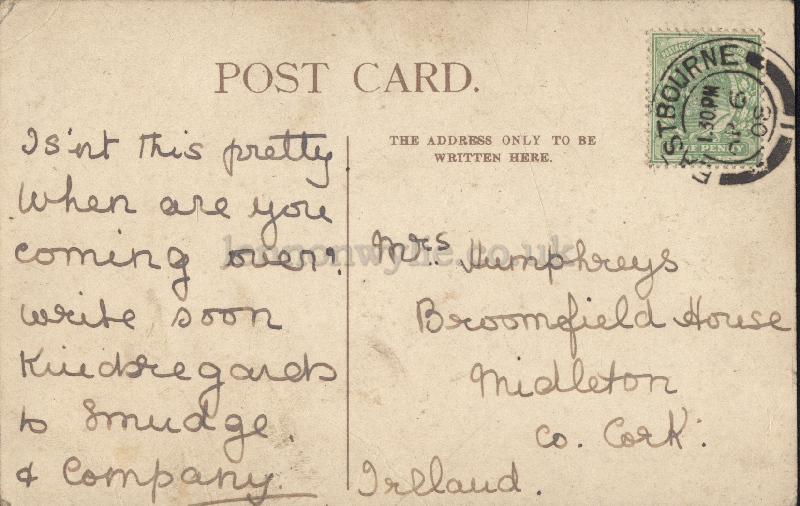 POST CARD.
Is'nt this pretty
When are you
coming over?
write soon
Kindsregards
to Smudge
& Company.
THE ADDRESS ONLY TO BE
WRITTEN HERE.
Mrs. Humphreys
Broomfield House
Midleton
Co. Cork.
Ireland.
STBOURNE
.30PM
30
PENNY
lennonwylie.co.uk